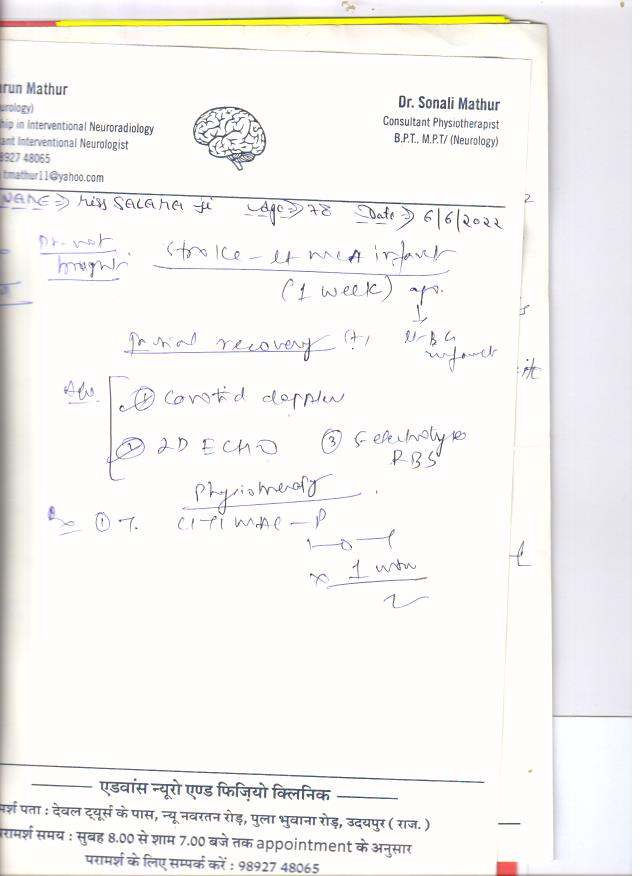 arun Mathur
urology)
hip in Interventional Neuroradiology
ant Interventional Neurologist
9927 48065
tmathur11@yahoo.com
Dr. Sonali Mathur
Consultant Physiotherapist
B.P.T., M.P.T/ (Neurology)
NAME ⇒ Miss SALAMA ji Age ⇒ 78 Date ⇒ 6/6/2022
Pt. not
brought
Stroke - Lt MCA infarct
(1 week) ago.
↓
Partial recovery (+) Lt BG
infarct
Adv. ① Carotid doppler
② 2D ECHO ③ S. electrolytes
RBS
Physiotherapy
Rx ① T. CITIMAC - P
1-0-1
x 1
एडवांस न्यूरो एण्ड फिज़ियो क्लिनिक
मर्श पता : देवल ट्यूर्स के पास, न्यू नवरतन रोड़, पुला भुवाना रोड़, उदयपुर ( राज. )
रामर्श समय : सुबह 8.00 से शाम 7.00 बजे तक appointment के अनुसार
परामर्श के लिए सम्पर्क करें : 98927 48065